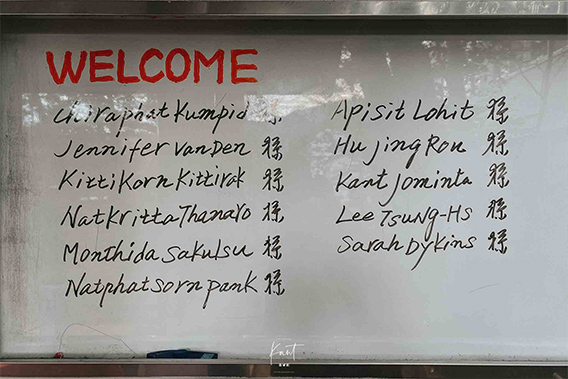 WELCOME
Chiraphat Kumpid 様
Jennifer VanDen 様
Kittikorn Kittirak 様
Natkritta Thanaro 様
Monthida Sakulsu 様
Natphatsorn pank 様
Apisit Lohit 様
Hu Jing Rou 様
Kant Jominta 様
Lee Tsung-Hs 様
Sarah Dykins 様
Kant